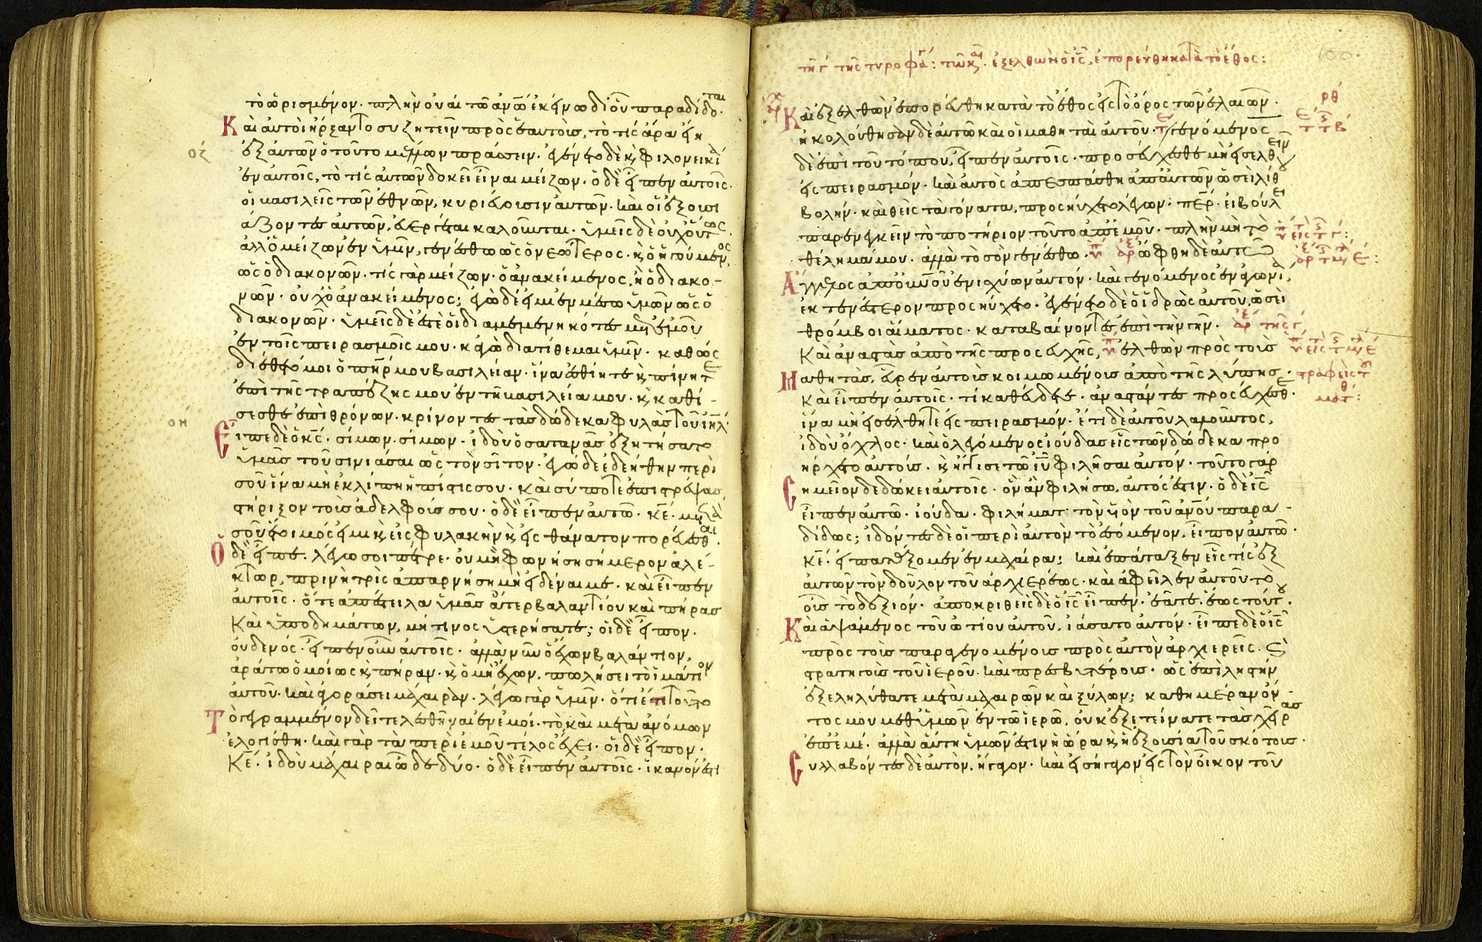 τὸ ὡρισμένον· πλὴν οὐαὶ τῶ ἀνω ἐκείνω δι' οὗ παραδίδοται·
Καὶ αὐτοὶ ἤρξαντο συζητεῖν πρὸς ἑαυτοὺς, τὸ τίς ἄρα εἴη
οζ
ἐξ αὐτῶν ὁ τοῦτο μέλλων πράσσειν· ἐγένετο δὲ κ φιλονεικία
ἐν αὐτοῖς, τὸ τίς αὐτῶν δοκεῖ εἶναι μείζων· ὁ δὲ εἶπεν αὐτοῖς·
οἱ βασιλεῖς τῶν ἐθνῶν, κυριεύουσιν αὐτῶν· καὶ οἱ ἐξουσι
άζοντες αὐτῶν, εὐεργέται καλοῦνται· ὑμεῖς δὲ οὐχ οὕτως·
ἀλλ' ὁ μείζων ἐν ὑμῖν, γενέσθω ὡς ὁ νεώτερος· κ ὁ ἡγούμενος,
ὡς ὁ διακονῶν· τίς γὰρ μείζων· ὁ ἀνακείμενος, ἢ ὁ διακο-
νῶν· οὐχὶ ὁ ἀνακείμενος; ἐγὼ δέ εἰμι ἐν μέσω ὑμῶν ὡς ὁ
διακονῶν· ὑμεῖς δέ ἐστε οἱ διαμεμενηκότες μετ' ἐμοῦ
ἐν τοῖς πειρασμοῖς μου· κἀγὼ διατίθεμαι ὑμῖν· καθὼς
διέθετό μοι ὁ πηρ μου βασιλείαν· ἵνα ἐσθίητε κ πίνητε
ἐπὶ τῆς τραπέζης μου ἐν τῆ βασιλεία μου· κ καθί-
σεσθε ἐπὶ θρόνων· κρίνοντες τὰς δώδεκα φυλὰς τοῦ ιηλ·
οη
Εἶπε δὲ ὁ κς· σίμων, σίμων· ἰδοὺ ὁ σατανᾶς ἐξητήσατο
ὑμᾶς τοῦ σινιάσαι ὡς τὸν σῖτον· ἐγὼ δὲ ἐδεήθην περὶ
σοῦ ἵνα μὴ ἐκλίπη ἡ πίστις σου· καὶ σύ ποτε ἐπιστρέψας
στήριξον τοὺς ἀδελφούς σου· ὁ δὲ εἶπεν αὐτῶ· κε· μετὰ
σοῦ ἕτοιμός εἰμι κ εἰς φυλακὴν κ εἰς θάνατον πορεύεσθαι·
Ὁ δὲ εἶπε· λέγω σοι πέτρε· οὐ μὴ φωνήση σήμερον ἀλέ-
κτωρ, πρινὴ τρὶς ἀπαρνήση μὴ εἰδέναι με· καὶ εἶπεν
αὐτοῖς· ὅτε ἀπέστειλα ὑμᾶς ἄτερ βαλαντίου καὶ πήρας
Καὶ ὑποδημάτων, μή τινος ὑστερήσατε; οἱ δὲ εἶπον·
οὐδενός· εἶπεν οὖν αὐτοῖς· ἀλλὰ νῦν ὁ ἔχων βαλάντιον,
ἀράτω ὁμοίως κ πήραν· κ ὁ μὴ ἔχων, πωλήσει τὸ ἱμάτιον
αὐτοῦ· καὶ ἀγοράσει μάχαιραν· λέγω γὰρ ὑμῖν· ὅτι ἔτι τοῦτο
Τὸ γεγραμμένον δεῖ τελεσθῆναι ἐν ἐμοί· τὸ καὶ μετὰ ἀνόμων
ἐλογίσθη· καὶ γὰρ τὰ περὶ ἐμοῦ τέλος ἔχει· οἱ δὲ εἶπον·
Κε· ἰδοὺ μάχαιραι ὧδε δύο· ὁ δὲ εἶπεν αὐτοῖς· ἱκανόν ἐστι
τῆ γ τῆς τυροφάγ: τῶ κ· ἐξελθὼν ὁ ις, ἐπορεύθη κατὰ τὸ ἔθος:
100
Καὶ ἐξελθὼν ἐπορεύθη κατὰ τὸ ἔθος εἰς τὸ ὄρος τῶν ἐλαιῶν·
ρθ
ἠκολούθησαν δὲ αὐτῶ καὶ οἱ μαθηταὶ αὐτοῦ· γενόμενος
δὲ ἐπὶ τοῦ τόπου, εἶπεν αὐτοῖς· προσεύχεσθε μὴ εἰσελθεῖν
εἰς πειρασμόν· καὶ αὐτὸς ἀπεσπάσθη ἀπ' αὐτῶν ὡσεὶ λίθου
βολήν· καὶ θεὶς τὰ γόνατα, προσηύχετο λέγων· περ· εἰ βούλει
παρενεγκεῖν τὸ ποτήριον τοῦτο ἀπ' ἐμοῦ· πλὴν μὴ τὸ
θέλημά μου· ἀλλὰ τὸ σὸν γενέσθω· ὤφθη δὲ αὐτῶ
Ἄγγελος ἀπ' οὐνοῦ ἐνισχύων αὐτόν· καὶ γενόμενος ἐν ἀγωνία,
ἐκτενέστερον προσηύχετο· ἐγένετο δὲ ὁ ἱδρὼς αὐτοῦ, ὡσεὶ
θρόμβοι αἵματος· καταβαίνοντες ἐπὶ τὴν γῆν·
Καὶ ἀναστὰς ἀπὸ τῆς προσευχῆς, ἐλθὼν πρὸς τοὺς
Μαθητὰς, εὗρεν αὐτοὺς κοιμωμένους ἀπὸ τῆς λύπης·
Καὶ εἶπεν αὐτοῖς· τί καθεύδετε· ἀναστάντες προσεύχεσθε·
ἵνα μὴ εἰσέλθητε εἰς πειρασμόν· ἔτι δὲ αὐτοῦ λαλοῦντος,
ἰδοὺ ὄχλος· καὶ ὁ λεγόμενος ἰούδας εἷς τῶν δώδεκα προ
ήρχετο αὐτούς· κ ἤγγισε τῶ ιυ φιλῆσαι αὐτόν· τοῦτο γὰρ
Σημεῖον δεδώκει αὐτοῖς· ὃν ἂν φιλήσω, αὐτός ἐστιν· ὁ δὲ ις
εἶπεν αὐτῶ· ἰούδα· φιλήματι τὸν υἱὸν τοῦ ἀνου παρα-
δίδως; ἰδόντες δὲ οἱ περὶ αὐτὸν τὸ ἐσόμενον, εἶπον αὐτῶ·
Κε· εἰ πατάξομεν ἐν μαχαίρα; καὶ ἐπάταξεν εἷς τις ἐξ
αὐτῶν τὸν δοῦλον τοῦ ἀρχιερέως· καὶ ἀφεῖλεν αὐτοῦ τὸ
οὖς τὸ δεξιόν· ἀποκριθεὶς δὲ ὁ ις εἶπεν· ἐᾶτε ἕως τούτου·
Καὶ ἁψάμενος τοῦ ὠτίου αὐτοῦ, ἰάσατο αὐτόν· εἶπε δὲ ὁ ις
πρὸς τοὺς παραγενομένους πρὸς αὐτὸν ἀρχιερεῖς· κ
στρατηγοὺς τοῦ ἱεροῦ· καὶ πρεσβυτέρους· ὡς ἐπὶ ληστὴν
ἐξεληλύθατε μετὰ μαχαιρῶν καὶ ξύλων; καθημέραν ὄν-
τος μου μεθ' ὑμῶν ἐν τῶ ἱερῶ, οὐκ ἐξετείνατε τὰς χεῖρας
ἐπ' ἐμέ· ἀλλ' αὕτη ὑμῶν ἐστιν ἡ ὥρα κ ἡ ἐξουσία τοῦ σκότους·
Συλλαβόντες δὲ αὐτὸν, ἤγαγον· καὶ εἰσήγαγον εἰς τὸν οἶκον τοῦ